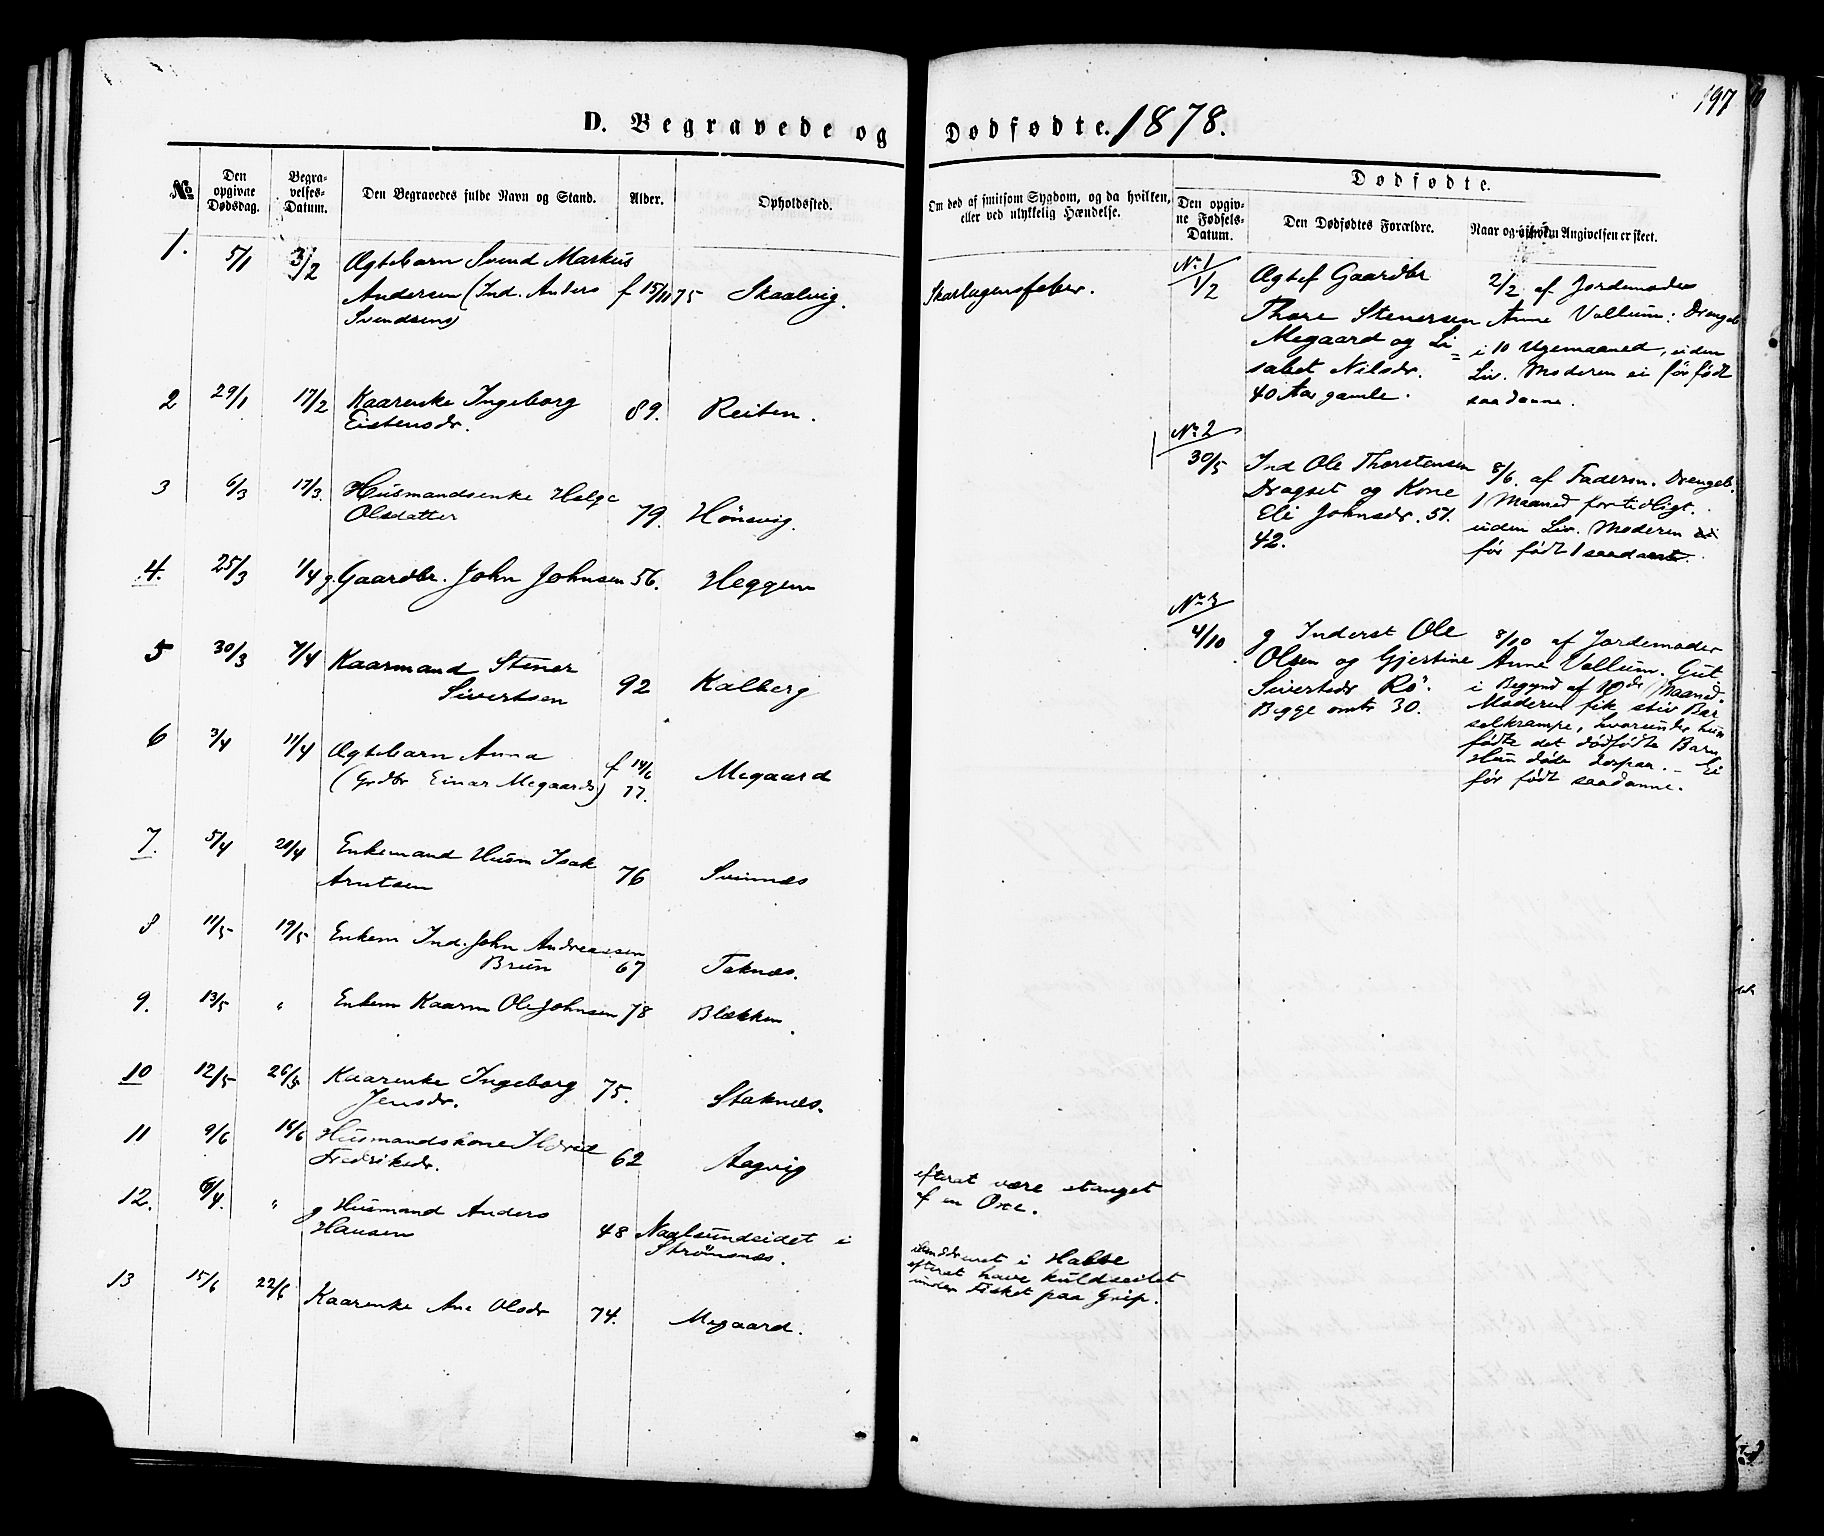 197
D. Begravede og Dødfødte. 1878.
№
Den opgivne Dødsdag.
Begravelses-Datum.
Den Begravedes fulde Navn og Stand.
Alder.
Opholdssted.
Om død af smitsom Sygdom, og da hvilken,
eller ved ulykkelig Hændelse.
Dødfødte.
Den opgivne Fødsels-Datum.
Den Dødfødtes Forældre.
Naar og af hvem Angivelsen er skeet.
1. 5/1 3/2 Ægtebarn Svend Markus
Andersen (Ind. Anders f 15/11 75 Skaalvig. Skarlagensfeber.
Svendsens)
2 29/1 17/2 Kaarenke Ingeborg
Eistensdr. 89. Reiten.
3 6/3 17/3. Husmandsenke Helge
Olsdatter 79. Hönsvig.
4. 25/3 1/4 g. Gaardbr. John Johnsen 56. Heggem
5 30/3 7/4 Kaarmand Stener
Sivertsen 92 Kalberg
6 3/4 11/4 Ægtebarn Anna f 14/6
(Grdbr Einar Megaards) 77. Megaard
7. 5/4 28/4 Enkemand Husm Isak
Arntsen 76 Svinnæs
8 11/5 19/5 Enkem Ind. John Andreassen
Brun 67 Taknæs.
9. 13/5 " Enkem Kaarm Ole Johnsen 78 Blækken.
10 12/5 26/5 Kaarenke Ingeborg
Jensdr. 75. Staknæs.
11 9/6 16/6 Husmandskone Ildrid
Fredriksdr. 62 Aagvig
12. 6/4. " g Husmand Anders
Hansen 48 Naalsundeidet i
Strömsnæs.
efterat være stanget
af en Oxe.
13 15/6 22/6 Kaarenke Ane Olsdr 74. Megaard.
efterat have kuldseilet
under Fisket paa Grip.
No 1
1/2 Ægtef Gaardbr
Thore Stenersen
Megaard og Li=
sabet Nilsdr.
40 Aar gamle.
2/2. af Jordemoder
Anne Vollum: Drengeb
i 10 Ugemaaned, uden
Liv. Moderen ei før født
saadanne.
No 2
30/5 Ind Ole Thorstensen
Dragset og Kone
Eli Johnsdr. 51.
42.
8/6. af Faderen. Drengeb.
1 Maaned fortidligt.
uden Liv. Moderen ei
før født 1 saadant.
No 3
4/10 g Inderst Ole
Olsen og Gjertine
Sivertsdr Rö.
Begge omtr 30.
8/10 af Jordemoder
Anne Vollum. Gut
i Begynd af 10de Maaned.
Moderen fik stiv Bar
selkrampe, hvorunder hun
fødte det dødfødte Barn,
Hun døde derpaa. - Ei
før født saadanne.